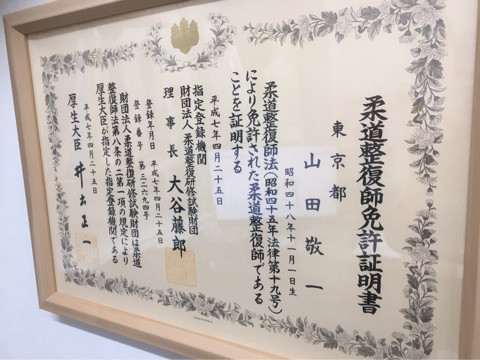 柔道整復師免許証明書
東京都
山田敬一
昭和四十八年十一月一日生
柔道整復師法(昭和四十五年法律第十九号)
により免許された柔道整復師である
ことを証明する
平成七年四月二十五日
指定登録機関
財団法人柔道整復研修試験財団
理事長 大谷藤郎
登録年月日 平成七年四月二十五日
登録番号 第三二六九四号
財団法人柔道整復研修試験財団は柔道
整復師法第八条の二第一項の規定により
厚生大臣が指定した指定登録機関である
平成七年四月二十五日
厚生大臣 井出正一